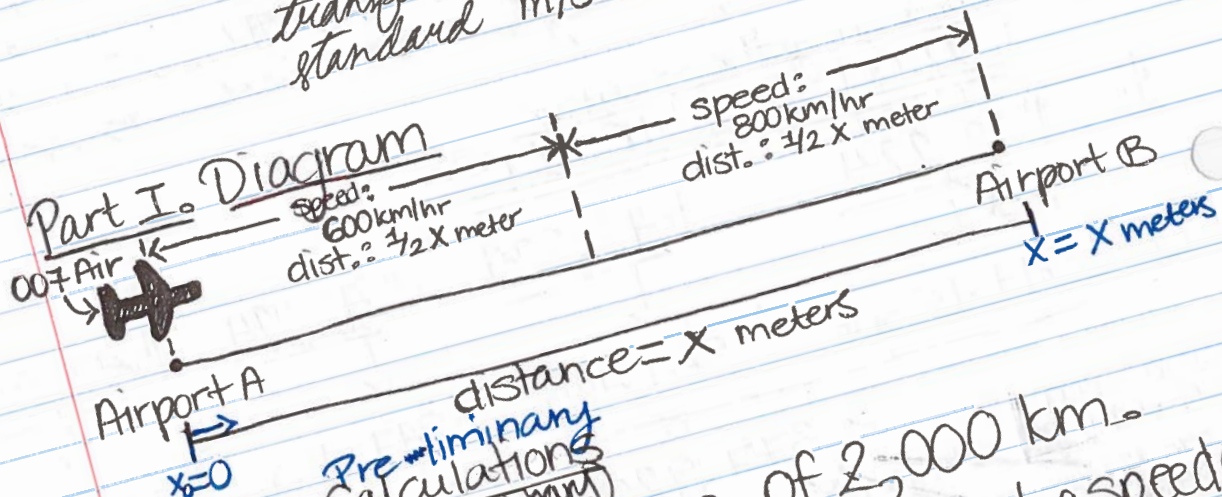 standard m/s
Part I. Diagram
speed:
600km/hr
dist.: 1/2 X meter
speed:
800km/hr
dist.: 1/2 X meter
007 Air
Airport A
Airport B
X = X meters
distance = X meters
X₀=0
Pre-liminary
calculations
of 2,000 km.
speed